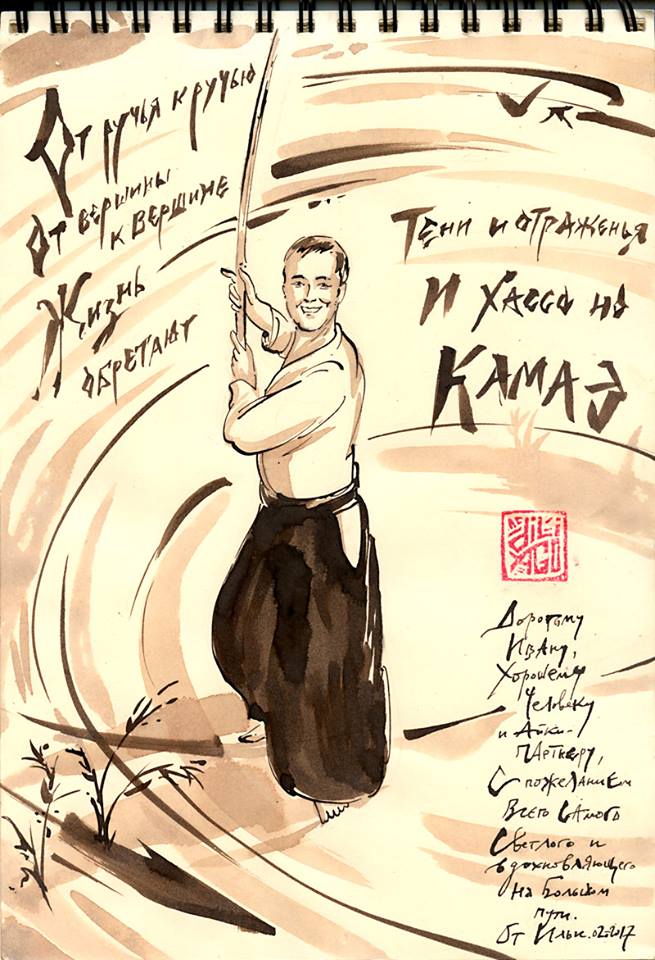 От ручья к ручью
От вершины
к вершине
Жизнь
обретают
Тени и отраженья
И Хассо но
Камаэ
Дорогому
Ивану,
Хорошему
Человеку
и Айки-
Партнеру,
С пожеланием
Всего Самого
Светлого и
вдохновляющего
на Большом
пути.
От 02.2017